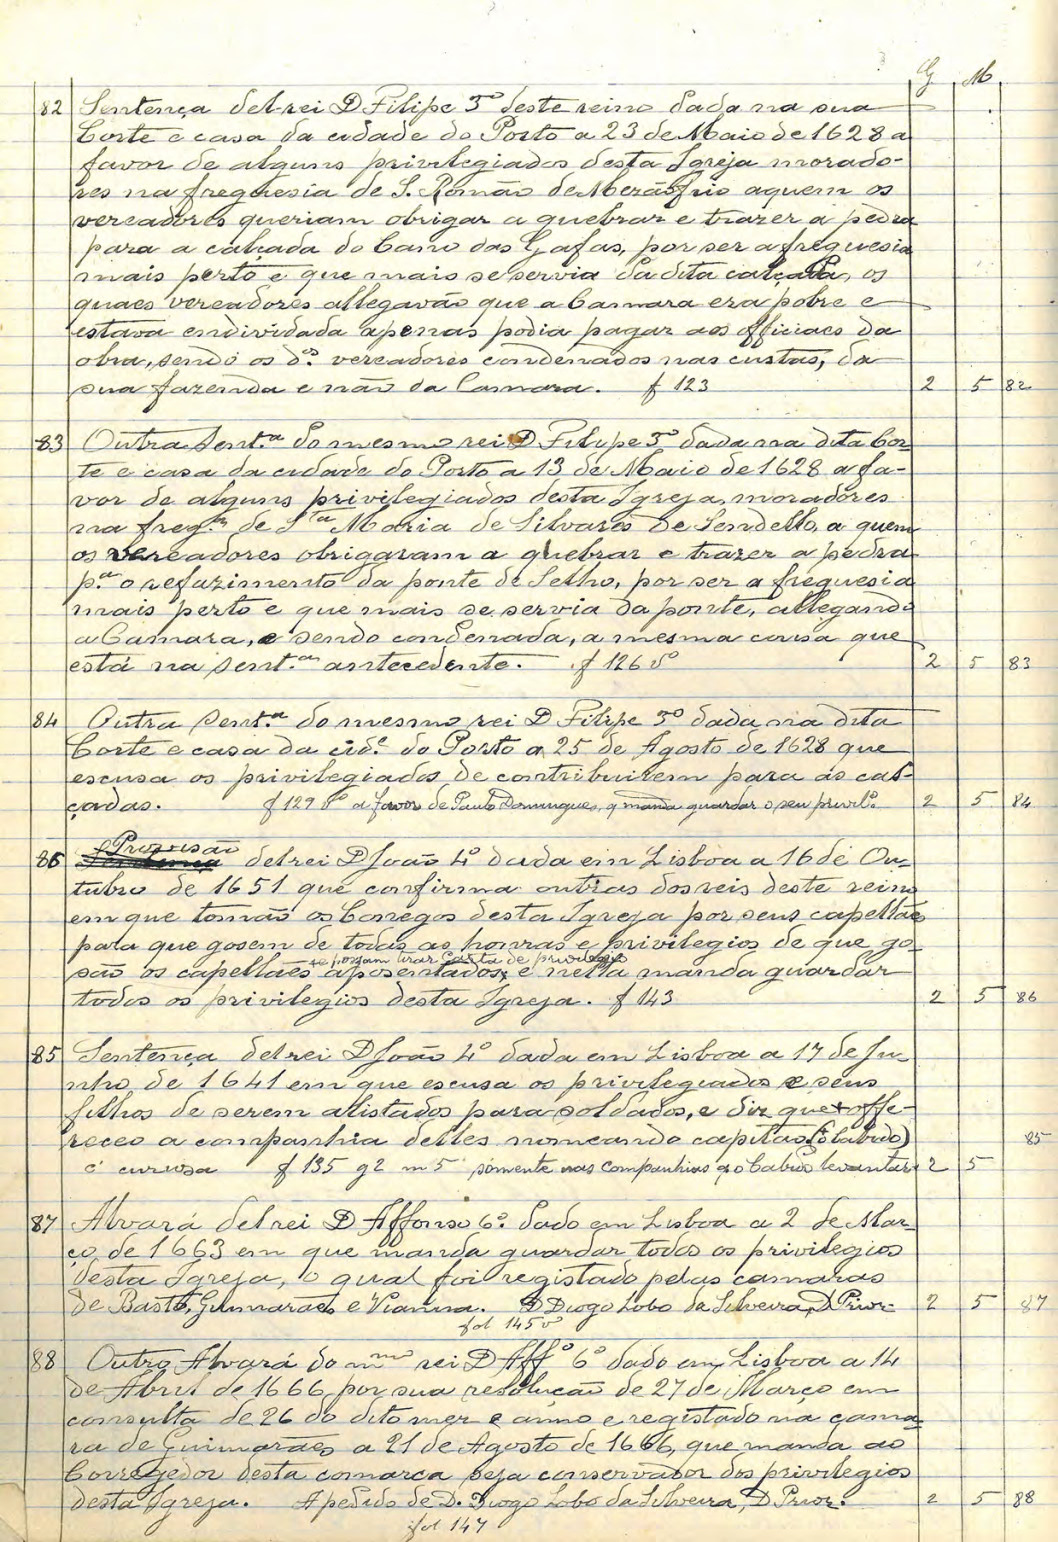 G M
82 Sentença del-rei D Filipe 3º deste reino dada na sua
Corte e casa da cidade do Porto a 23 de Maio de 1628 a
favor de alguns privilegiados desta Igreja morado-
res na freguesia de S. Romão de Mezãofrio aquem os
vereadores queriam obrigar a quebrar e trazer a pedra
para a calçada do Cano das Gafas, por ser a freguesia
mais perto e que mais se servia da dita calçada, os
quaes vereadores allegavão que a Camara era pobre e
estava endividada apenas podia pagar aos officiaes da
obra, sendo os dºs. vereadores condenados nas custas, da
sua fazenda e não da Camara. f 123 2 5 82
83 Outra Sent.ª do mesmo rei D Filipe 3º dada na dita Cor-
te e casa da cidade do Porto a 13 de Maio de 1628 a fa-
vor de alguns privilegiados desta Igreja, moradores
na freg.ª de S.ta Maria de Silvares de Sendello, a quem
os vereadores obrigavam a quebrar e trazer a pedra
p.ª o refazimento da ponte de Selho, por ser a freguesia
mais perto e que mais se servia da ponte, allegando
a Camara, e sendo condenada, a mesma cousa que
está na sent.ª antecedente. f 126 vº 2 5 83
84 Outra Sent.ª do mesmo rei D Filipe 3º dada na dita
Corte e casa da cid.e do Porto a 25 de Agosto de 1628 que
escusa os privilegiados de contribuirem para as cal-
çadas. f 129 vº a favor de Paulo Domingues, q manda guardar o seu privil.º 2 5 84
Provisão
86 Sentença del rei D João 4º dada em Lisboa a 16 de Ou-
tubro de 1651 que confirma outras dos reis deste reino
em que tomão os Conegos desta Igreja por seus capellães
para que gosem de todas as honras e privilegios de que go-
se possam tirar carta de privilegio
são os capellães aposentados, e nella manda guardar
todos os privilegios desta Igreja. f 143 2 5 86
85 Sentença del rei D João 4º dada em Lisboa a 17 de Ju-
nho de 1641 em que escusa os privilegiados e seus
filhos de serem alistados para soldados, e diz que offe-
receo a companhia delles nomeando capitão (o Cabido) 85
é curiosa f 135 g 2 m 5 somente nas companhias q o Cabido levantar 2 5
87 Alvará del rei D Affonso 6º. dado em Lisboa a 2 de Mar-
ço de 1663 em que manda guardar todos os privilegios
desta Igreja, o qual foi registado pelas camaras
de Basto, Guimarães e Vianna. D Diogo Lobo da Silveira, D. Prior. 2 5 87
fol 145 vº
88 Outro Alvará do mmo rei D Affº 6º dado em Lisboa a 14
de Abril de 1666, por sua resolução de 27 de Março em
consulta de 26 do dito mez e anno e registado na cama-
ra de Guimarães a 21 de Agosto de 1666, que manda ao
Corregedor desta comarca seja conservador dos privilegios
desta Igreja. A pedido de D. Diogo Lobo da Silveira, D Prior. 2 5 88
fol 147